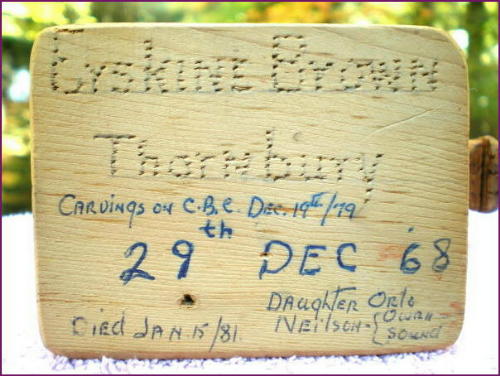 Erskine Brown
Thornburry
CARVINGS ON C.B.C. DEC. 19th/79
29th DEC 68
DAUGHTER ORLO
NEILSON - (OWEN SOUND
DIED JAN 15/81